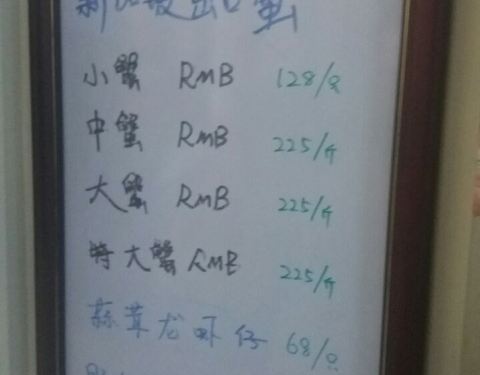 新加坡出口蟹
小蟹 RMB 128/只
中蟹 RMB 225/斤
大蟹 RMB 225/斤
特大蟹 RMB 225/斤
蒜茸龙虾仔 68/只